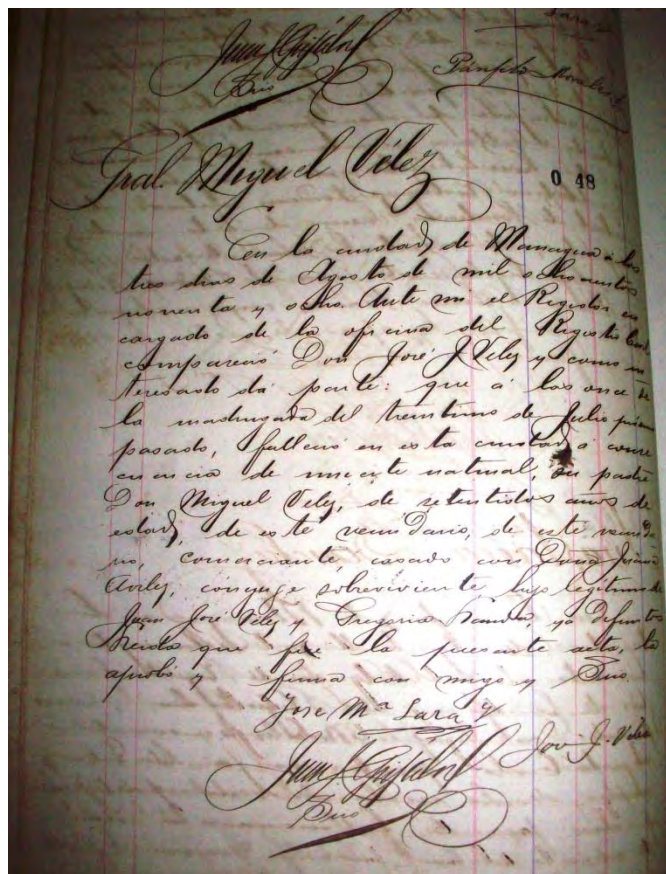 Lara
Juan
Srio
Pánfilo Morales
Gral. Miguel Vélez
0 48
En la ciudad de Managua á los
tres dias de Agosto de mil ochocientos
noventa y ocho. Ante mi el Registro en
cargado de la oficina del Registro Civil
compareció Don José J. Velez y como in
teresado dá parte: que á las once de
la madrugada del treintiuno de Julio próximo
pasado, falleció en esta ciudad á conse
cuencia de muerte natural, su padre
Don Miguel Velez, de setentidos años de
edad, de este vecindario, de este vecinda
rio, comerciante, casado con Doña Juana
Aviles, conyuge sobreviviente hijo legitimo de
Juan José Velez y Gregoria, ya defuntos
Leida que fué la presente acta, la
aprobó y firma con migo y Srio.
José Mª Lara
José J. Velez
Juan
Srio